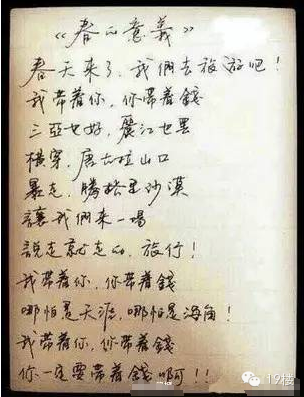 《春的意義》
春天来了，我們去旅游吧！
我带着你，你带着錢
三亞也好，麗江也罢
横穿，唐古拉山口
暴走，騰格里沙漠
讓我們来一場
説走就走的，旅行！
我带着你，你带着錢
哪怕是天涯，哪怕是海角！
我带着你，你带着錢
你一定要带着錢啊！！
19楼